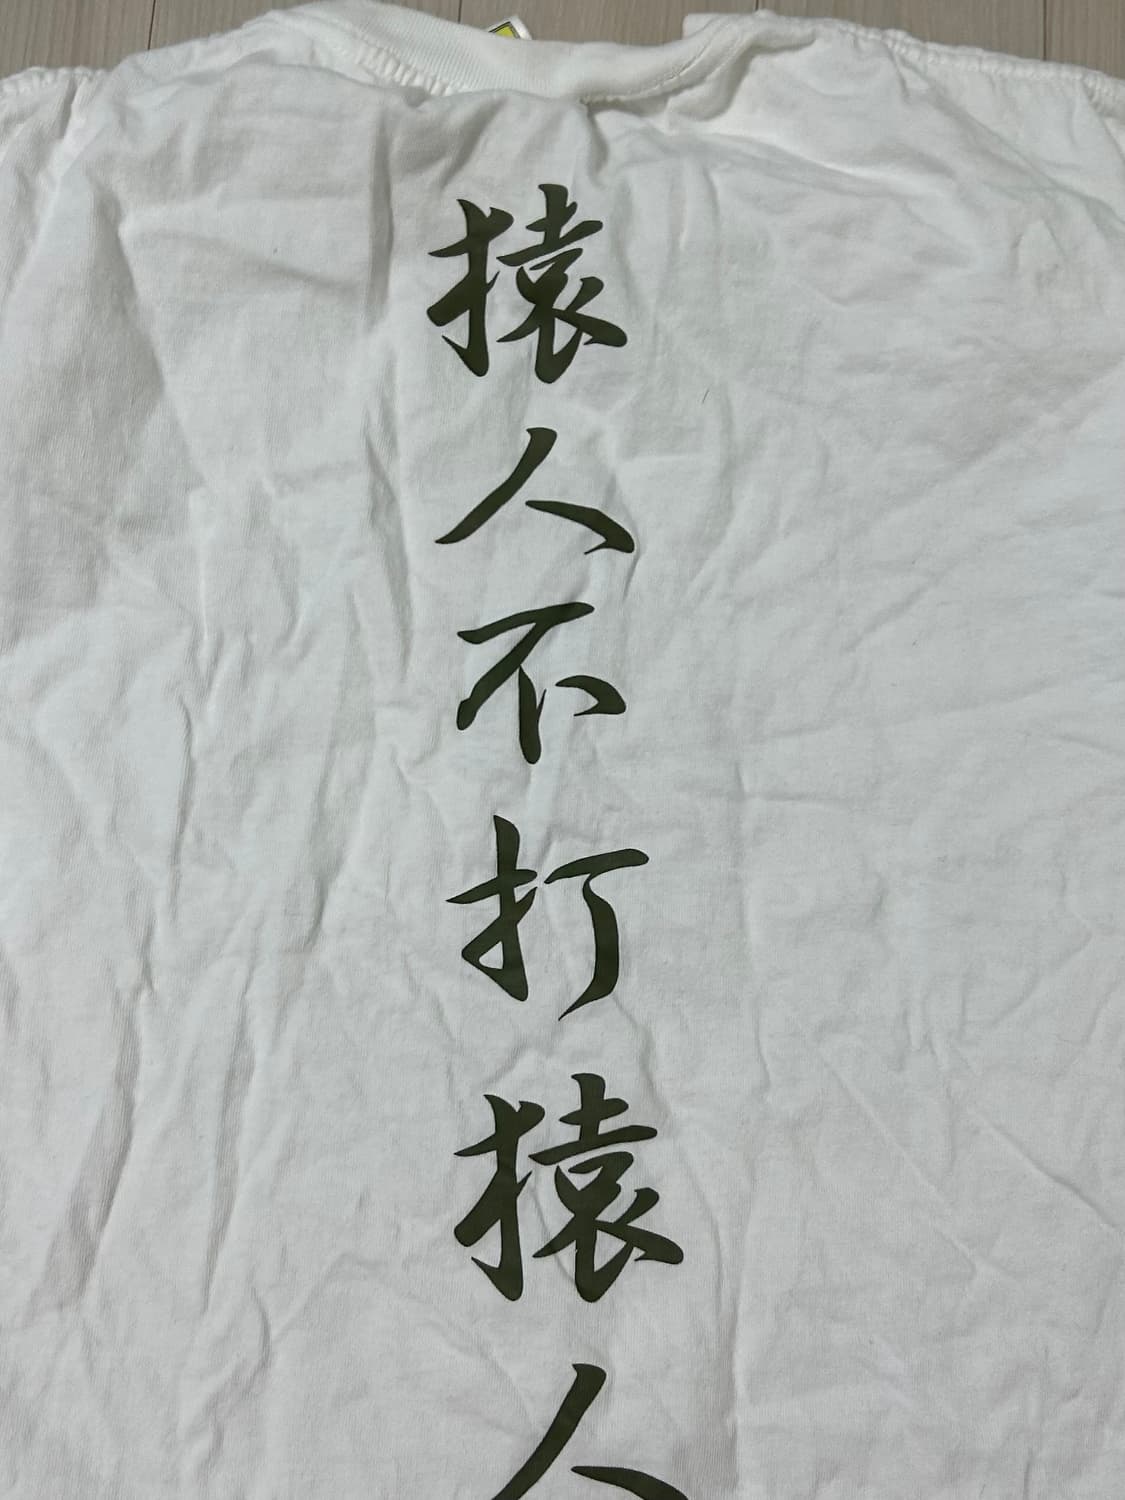 猿人不打猿人